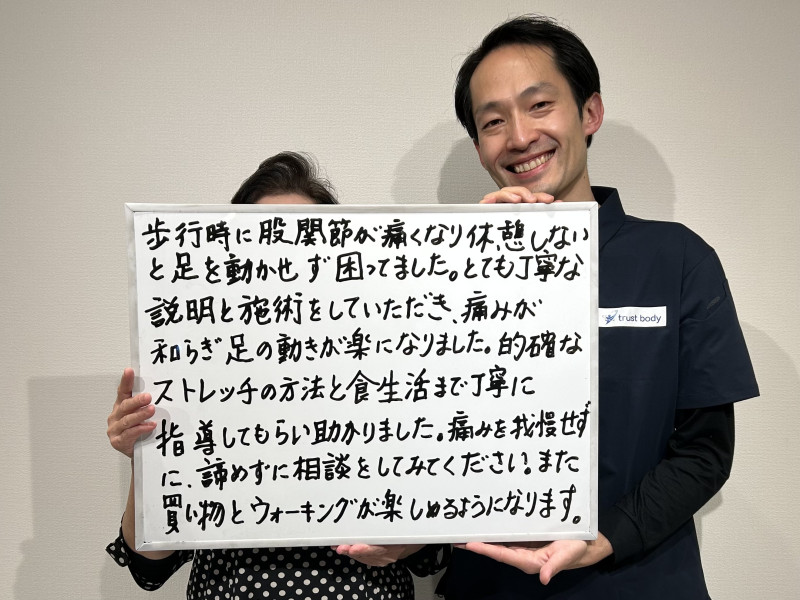 歩行時に股関節が痛くなり休憩しない
と足を動かせず困ってました。とても丁寧な
説明と施術をしていただき、痛みが
和らぎ足の動きが楽になりました。的確な
ストレッチの方法と食生活まで丁寧に
指導してもらい助かりました。痛みを我慢せず
に、諦めずに相談をしてみてください。また
買い物とウォーキングが楽しめるようになります。
trust body